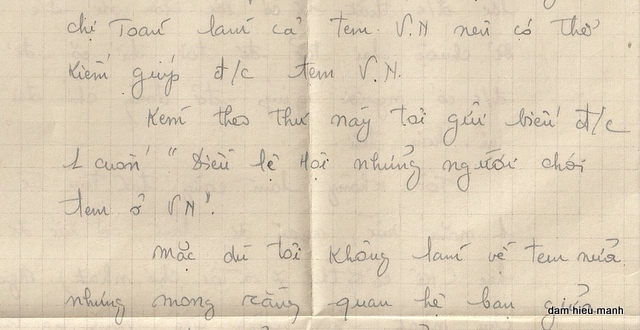 chị Toan làm cả tem V.N nên có thể
kiếm giúp đ/c tem V.N.
Kèm theo thư này tôi gửi biếu đ/c
1 cuốn "Điều lệ Hội những người chơi
tem ở VN".
Mặc dù tôi không làm về tem nữa
nhưng mong rằng quan hệ bạn giữa
dam hieu manh